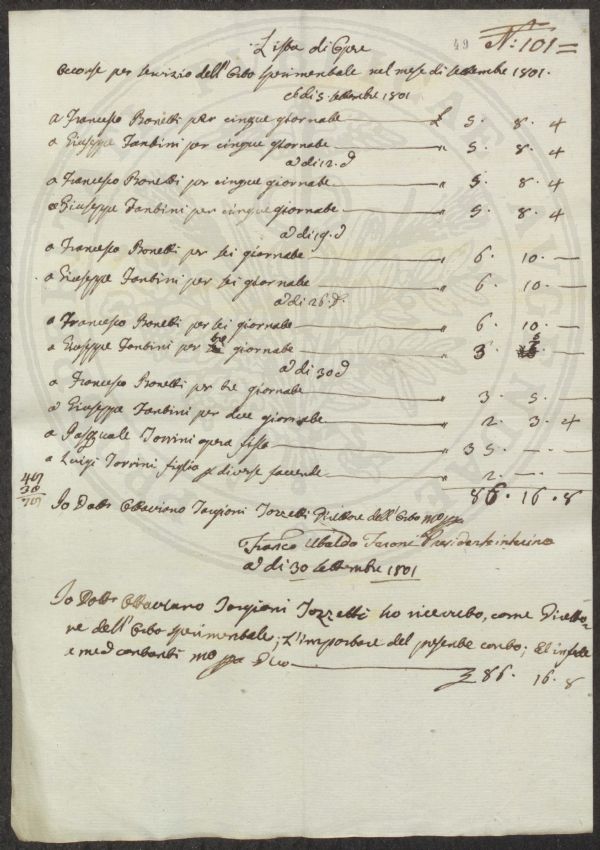 49 N: 101
Lista di Opre
Occorse per servizio dell'Orto Sperimentale nel mese di Settembre 1801.
Adi 5. Settembre 1801
a Francesco Bonetti per cinque giornate £ 5. 8. 4
a Giuseppe Fantini per cinque giornate " 5. 8. 4
a dì 12. d
a Francesco Bonetti per cinque giornate " 5. 8. 4
a Giuseppe Fantini per cinque giornate " 5. 8. 4
a dì 19. d
a Francesco Bonetti per sei giornate " 6. 10. —
a Giuseppe Fantini per sei giornate " 6. 10. —
a dì 26. d.
a Francesco Bonetti per sei giornate " 6. 10. —
a Giuseppe Fantini per tre giornate " 3. 5 —
a dì 30 d
a Francesco Bonetti per tre giornate " 3. 5. —
a Giuseppe Fantini per due giornate " 2. 3. 4
a Pasquale Torrini opera fissa " 35. — . —
a Luigi Torrini figlio p diverse faccende " 2. — . —
86. 16. 8
Io Dottr Ottaviano Targioni Tozzetti Direttore dell'Orto mo ppa
Franco Ubaldo Feroni Presidente interino
a dì 30 Settembre 1801
Io Dottr Ottaviano Targioni Tozzetti ho ricevuto, come Diretto-
re dell'Orto Sperimentale; L'importare del presente conto; Ed in fede
e med contanti mo ppa Dico
£ 86. 16. 8